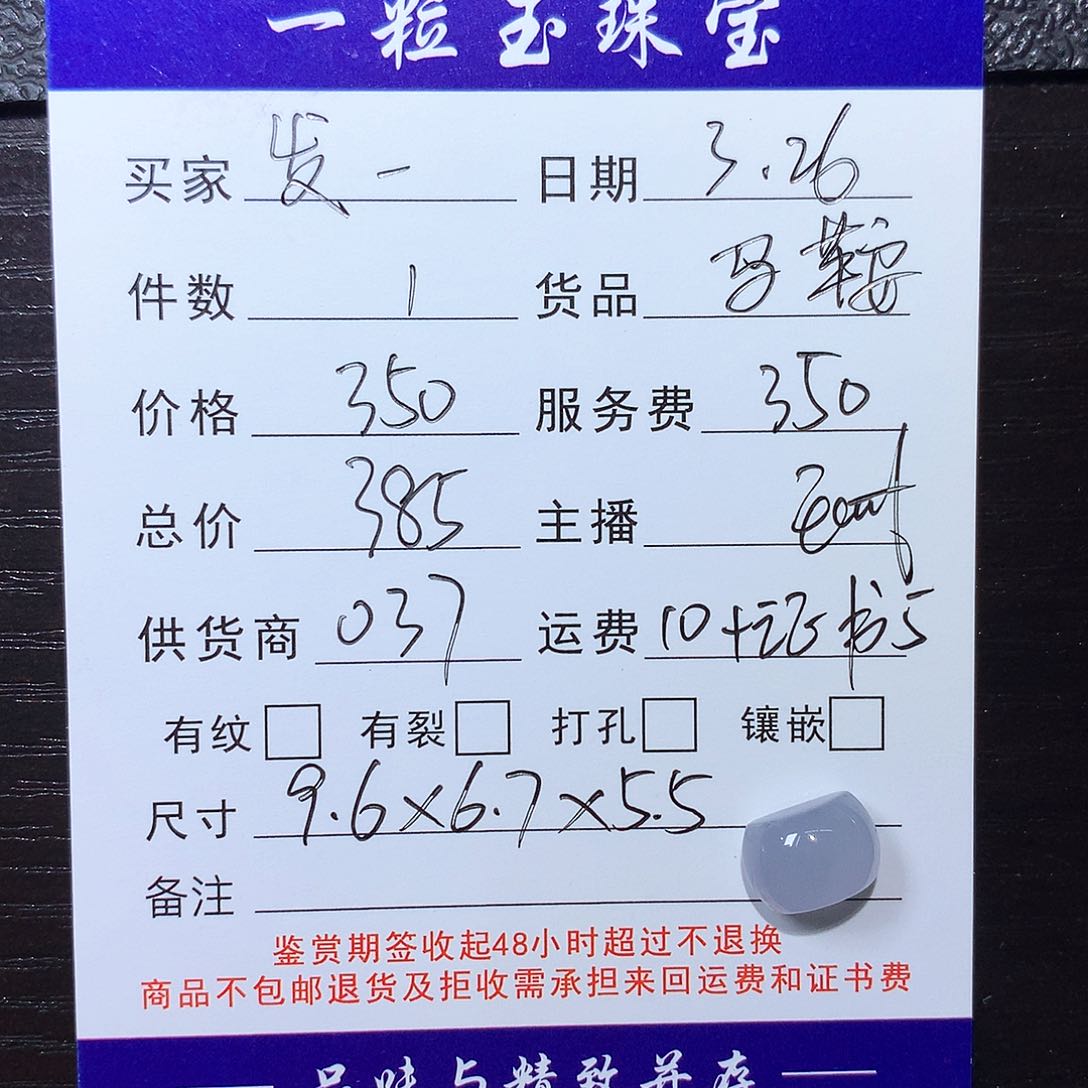 一粒玉珠宝
买家 发一 日期 3.26
件数 1 货品 马鞍
价格 350 服务费 350
总价 385 主播
供货商 037 运费 10+证书5
有纹 有裂 打孔 镶嵌
尺寸 9.6×6.7×5.5
备注
鉴赏期签收起48小时超过不退换
商品不包邮退货及拒收需承担来回运费和证书费
品味与精致并存